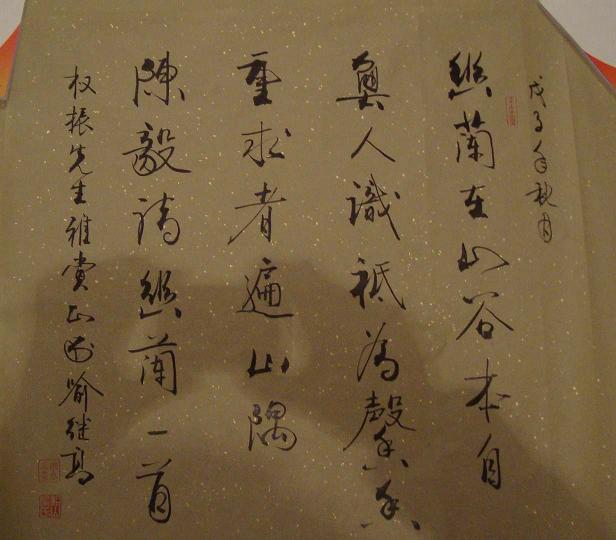 戊子年秋月
幽蘭在山谷本自
無人識祇為馨香
重求者遍山隅
陳毅詩幽蘭一首
权振先生雅賞喻继高